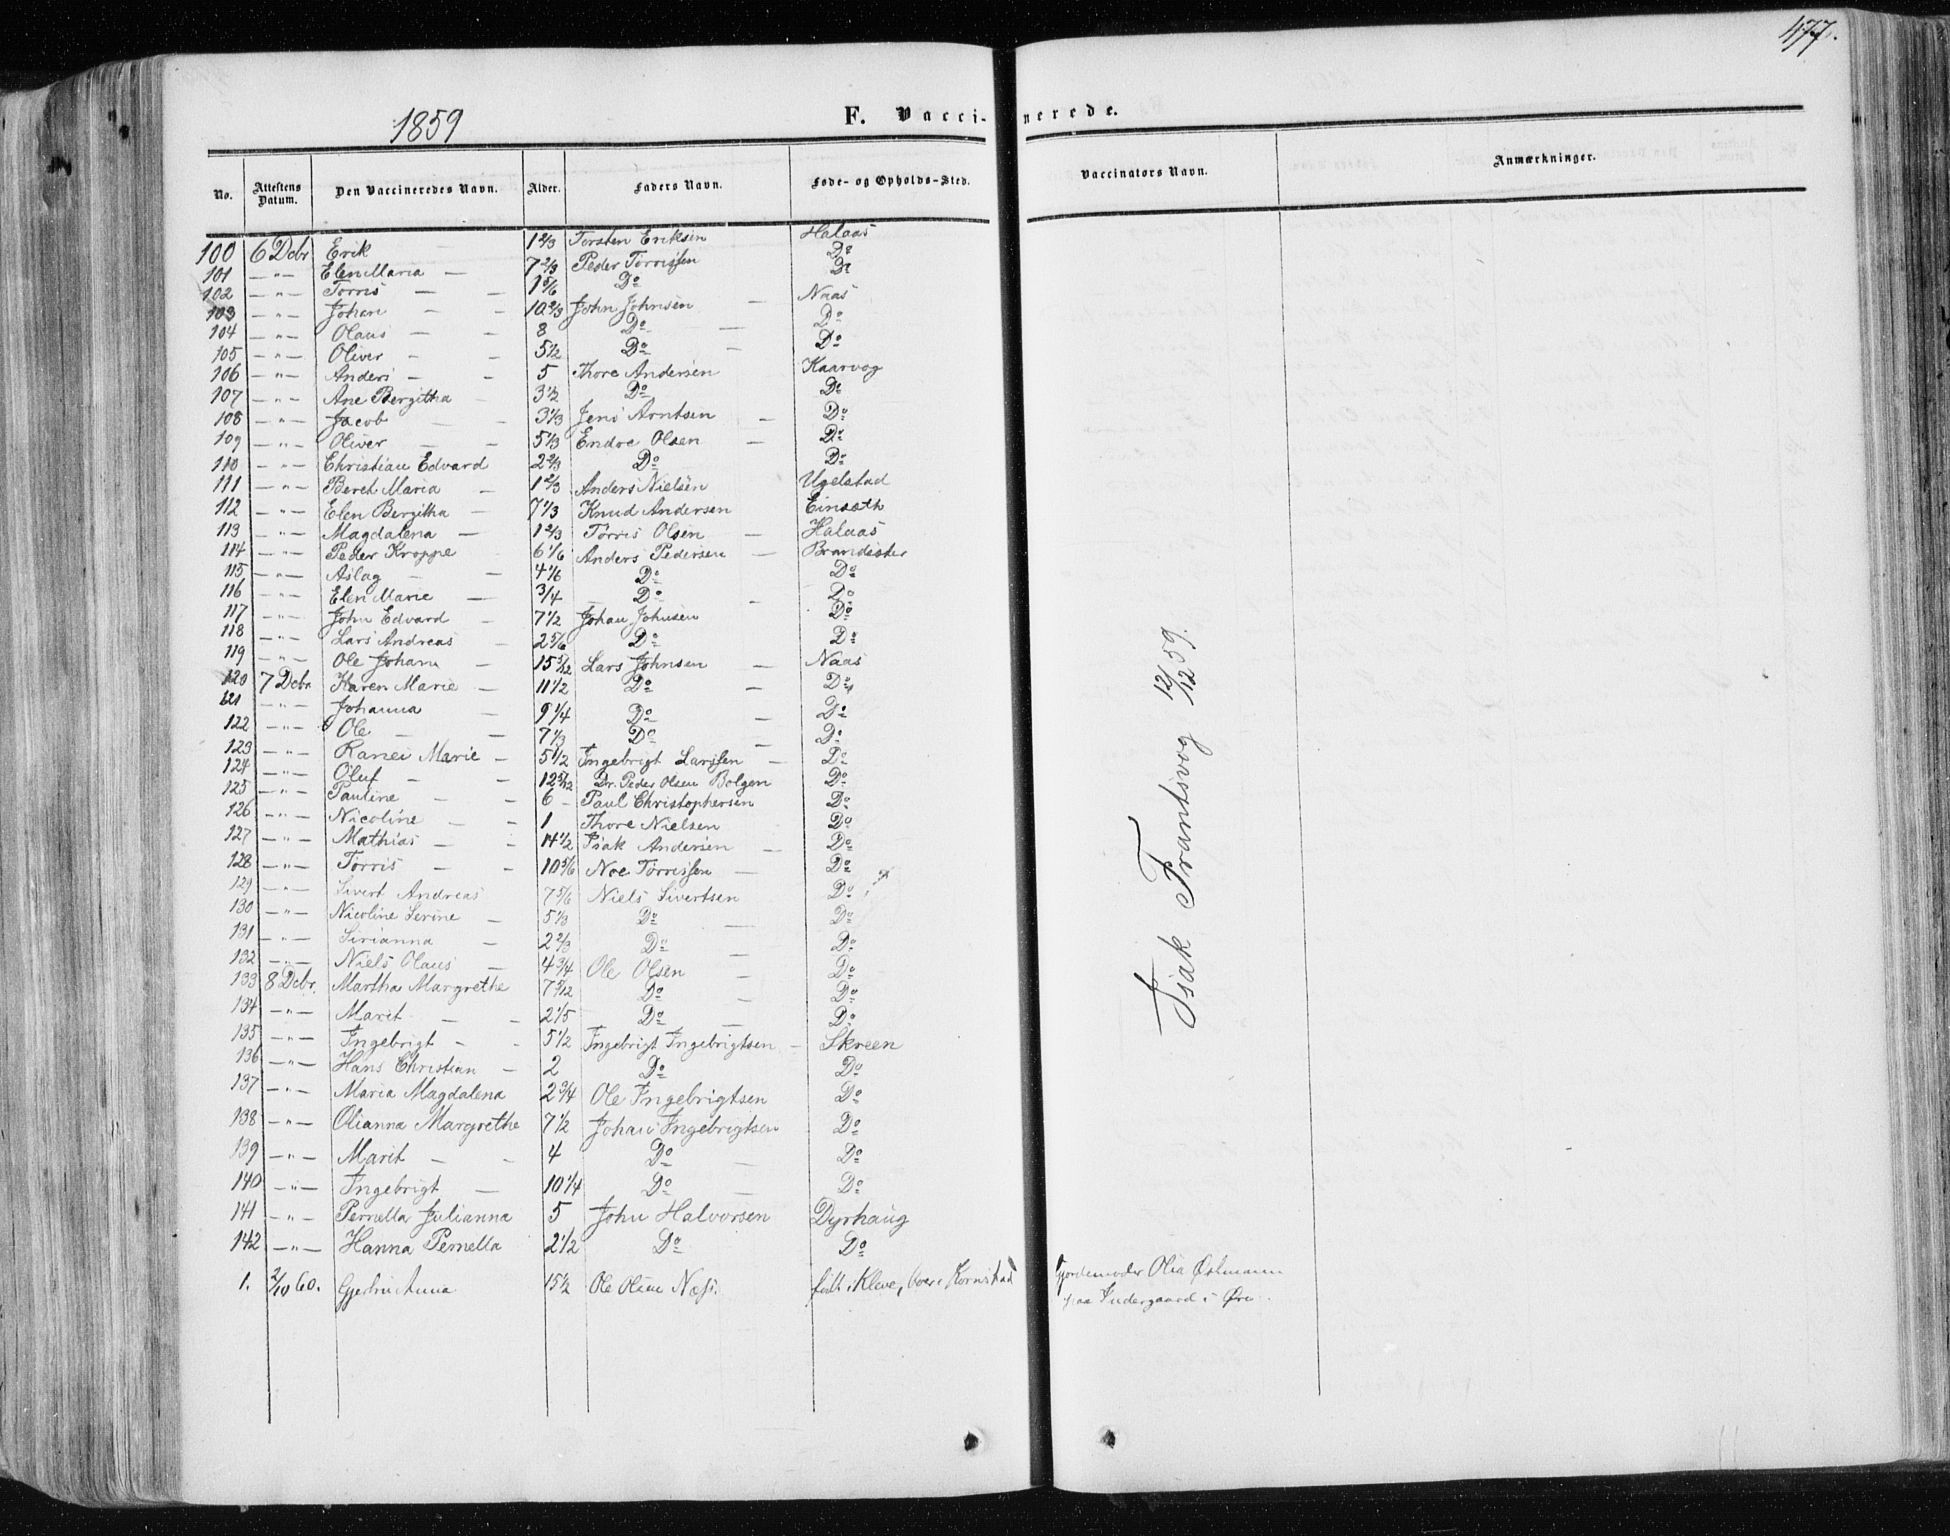 477.
1859
F. Vacci- nerede.
No. Attestens Datum. Den Vaccineredes Navn. Alder. Faders Navn. Føde- og Opholds-Sted. Vaccinators Navn. Anmærkninger.
100 6 Dcbr Erik 1 2/3 Torsten Eriksen Halaas
101 — " — Elen Maria — 7 2/3 Peder Tørrissen Do
102 — " — Tørris — — 1 5/6 Do Do
103 — " — Johan — — 10 2/3 John Johnsen — Naas
104 — " — Olaus — — 8 Do — Do
105 — " — Oliver — — 5 1/2 Do — Do
106 — " — Anders — — 5 Thore Andersen Kaarvog
107 — " — Ane Bergitha — 3 1/2 Do Do
108 — " — Jacob — — 3 1/3 Jens Arntsen — Do
109 — " — Oliver — — 5 1/3 Endre Olsen — Do
110 — " — Christian Edvard 2 2/3 Do Do
111 — " — Beret Maria — 1 2/3 Anders Nielsen Ugelstad
112 — " — Elen Bergitha — 7 1/3 Knud Andersen Einsæth
113 — " — Magdalena — 1 2/3 Tørris Olsen — Halaas
114 — " — Peder Kroppe 6 1/6 Anders Pedersen — Brandister
115 — " — Aslag — — 4 1/6 Do Do
116 — " — Elen Marie — 3/4 — Do — Do
117 — " — John Edvard — 7 1/2 Johan Johnsen Do
118 — " — Lars Andreas — 2 5/6 Do Do
119 — " — Ole Johan — 15 5/12 Lars Johnsen — Naas
120 7 Dcbr Karen Marie — 11 1/2 Do — Do
121 — " — Johanna — 9 1/4 Do — Do
122 — " — Ole — — 7 1/3 Do — Do
123 — " — Ranei Marie — 5 1/2 Ingebrigt Larssen — Do
124 — " — Oluf — — 12 5/12 Dr. Peder Olsen Bolgen Do
125 — " — Pauline — — 6 — Paul Christophersen Do
126 — " — Nicoline — — 1 Thore Nielsen Do
127 — " — Mathias — — 14 1/2 Isak Andersen — Do
128 — " — Tørris — — 10 5/6 Noe Tørrissen — Do
129 — " — Sivert Andreas 7 5/6 Niels Sivertsen Do
130 — " — Nicoline Serine — 5 1/3 Do Do
131 — " — Sirianna — 2 2/3 Do Do
132 — " — Niels Olaus — 4 3/4 Ole Olsen — Do
133 8 Dcbr. Martha Margrethe 7 5/12 Do — Do
134 — " — Marit — — 2 1/5 Do — Do
135 — " — Ingebrigt — — 5 1/2 Ingebrigt Ingebrigtsen — Skreen
136 — " — Hans Christian — 2 Do Do
137 — " — Maria Magdalena 2 3/4 Ole Ingebrigtsen Do
138 — " — Olianna Margrethe 7 1/2 Johan Ingebrigtsen Do
139 — " — Marit — — 4 Do — Do
140 — " — Ingebrigt — 10 1/4 Do — Do
141 — " — Pernella Julianna 5 John Halvorsen Dyrhaug
142 — " — Hanna Pernella 2 1/2 Do Do
1. 2/10 60. Gjertru Anna 15 1/2 Ole Olsen Næss. født i Kleve, boer i Kornstad Gjordemoder Olia Østmann
paa Indergaard i Øre.
Isak Frantsvog 12/12 59.